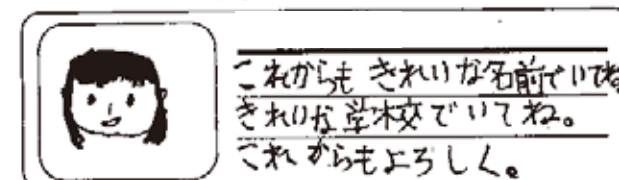 これからも きれいな名前でいてね
きれいな学校でいてね。
これからもよろしく。